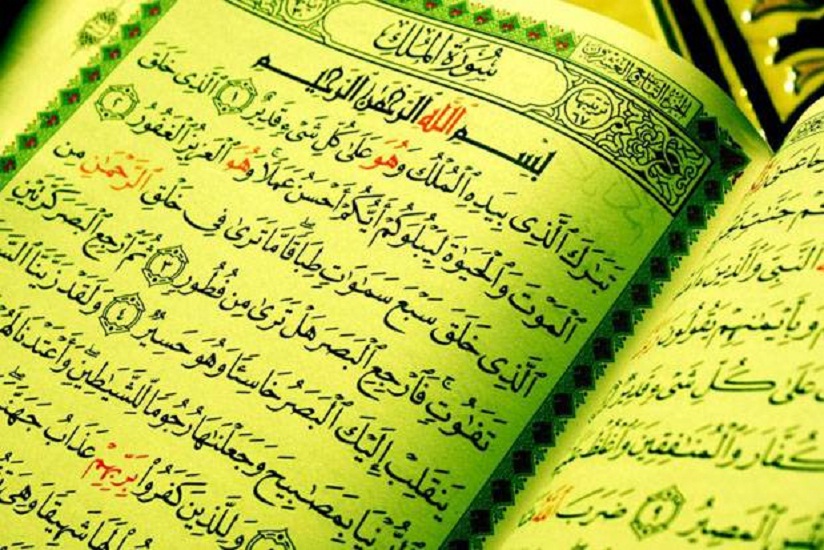 الجزء التاسع والعشرون
سُورَةُ المُلْكِ
بِسْمِ اللَّهِ الرَّحْمَٰنِ الرَّحِيمِ
تَبَٰرَكَ ٱلَّذِى بِيَدِهِ ٱلْمُلْكُ وَهُوَ عَلَىٰ كُلِّ شَىْءٍ قَدِيرٌ ١ ٱلَّذِى خَلَقَ
ٱلْمَوْتَ وَٱلْحَيَوٰةَ لِيَبْلُوَكُمْ أَيُّكُمْ أَحْسَنُ عَمَلًا وَهُوَ ٱلْعَزِيزُ ٱلْغَفُورُ ٢
ٱلَّذِى خَلَقَ سَبْعَ سَمَٰوَٰتٍ طِبَاقًا مَّا تَرَىٰ فِى خَلْقِ ٱلرَّحْمَٰنِ مِن
تَفَٰوُتٍ فَٱرْجِعِ ٱلْبَصَرَ هَلْ تَرَىٰ مِن فُطُورٍ ٣ ثُمَّ ٱرْجِعِ ٱلْبَصَرَ كَرَّتَيْنِ
يَنقَلِبْ إِلَيْكَ ٱلْبَصَرُ خَاسِئًا وَهُوَ حَسِيرٌ ٤ وَلَقَدْ زَيَّنَّا
بِمَصَٰبِيحَ وَجَعَلْنَٰهَا رُجُومًا لِّلشَّيَٰطِينِ وَأَعْتَدْنَا
وَلِلَّذِينَ كَفَرُوا۟ بِرَبِّهِمْ عَذَابُ جَهَنَّمَ
شَهِيقًا وَهِىَ
ٱلنَّبِىَّ وَٱلَّذِينَ
وَبِأَيْمَٰنِهِمْ يَقُولُونَ
عَلَىٰ كُلِّ شَىْءٍ قَدِيرٌ
وَٱلْمُنَٰفِقِينَ وَٱغْلُظْ
ٱلْمَصِيرُ ٩ ضَرَبَ ٱللَّهُ